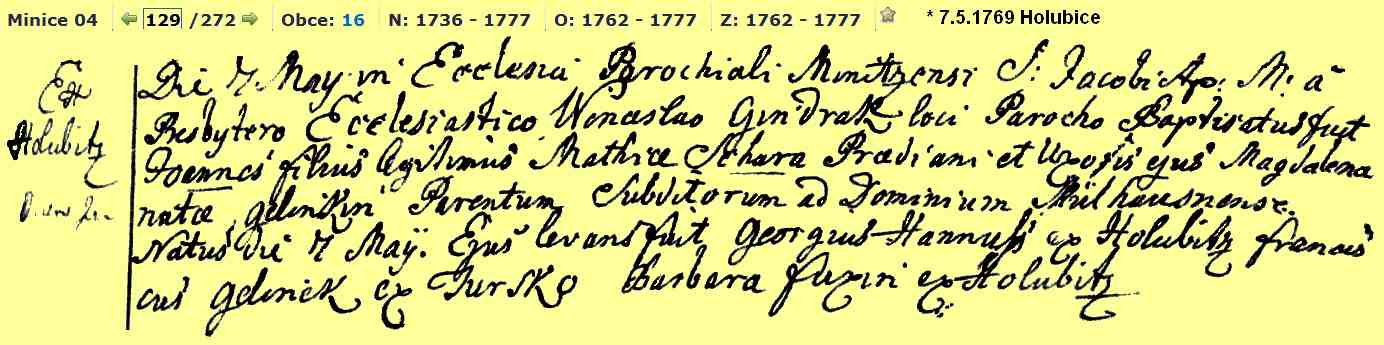 Minice 04 129 /272 Obce: 16 N: 1736 - 1777 O: 1762 - 1777 Z: 1762 - 1777 * 7.5.1769 Holubice
Ex
Holubitz
Die 7 May in Ecclesia Parochiali Minitzensi S: Jacobi Ap: M: à
Presbytero Ecclesiastico Wenceslao Gindrak loci Parocho Baptisatus fuit
Joannes filius legitimus Mathiæ Schara Prædiani et Uxoris ejus Magdalena
natæ gelinkin Parentum Subditorum ad Dominium Mülhausnense.
Natus Die 7 Maÿ. Ejus levans fuit Georgius Hannuss ex Holubitz francis
cus gelinek ex Tursko Barbara fuxin ex Holubitz